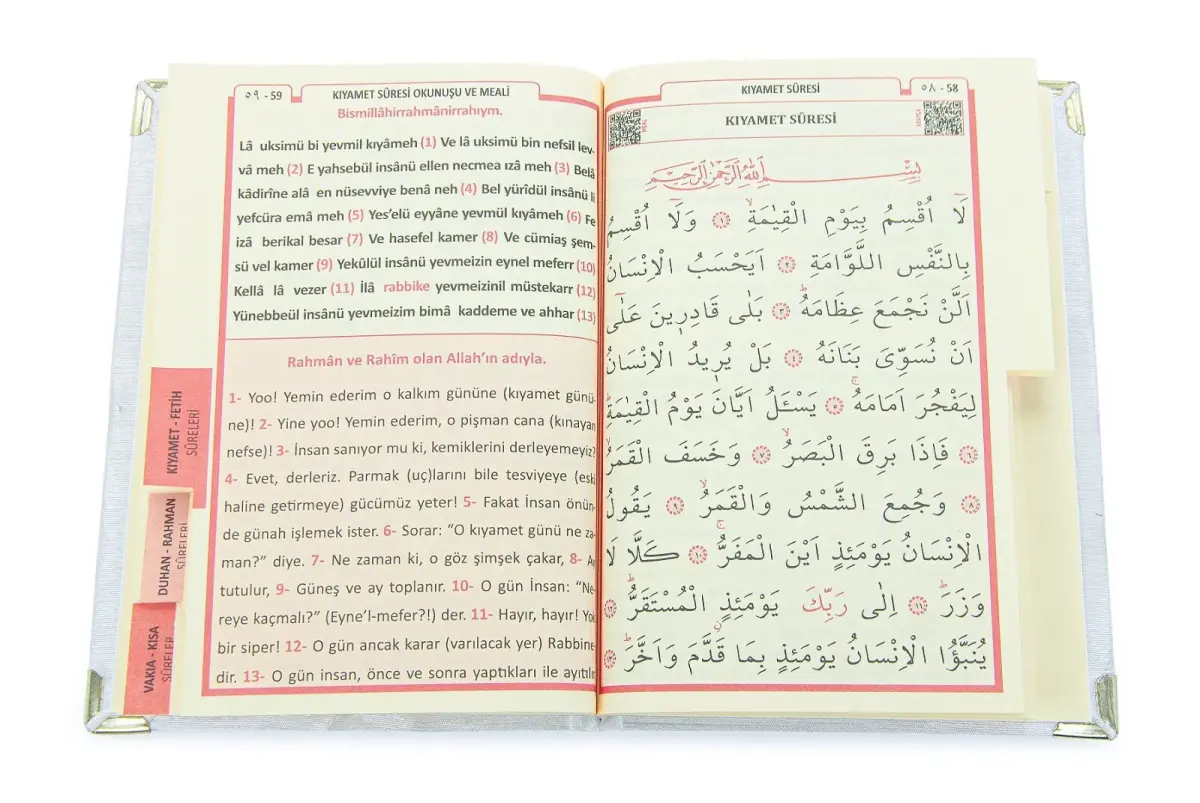 ٥٩ - 59
KIYAMET SÛRESİ OKUNUŞU VE MEALİ
Bismillâhirrahmânirrahıym.
Lâ uksimü bi yevmil kıyâmeh (1) Ve lâ uksimü bin nefsil lev-
vâ meh (2) E yahsebül insânü ellen necmea ızâ meh (3) Belâ
kâdirîne alâ en nüsevviye benâ neh (4) Bel yürîdül insânü li
yefcüra emâ meh (5) Yes'elü eyyâne yevmül kıyâmeh (6) Fe
izâ berikal besar (7) Ve hasefel kamer (8) Ve cümiaş şem-
sü vel kamer (9) Yekûlül insânü yevmeizin eynel meferr (10)
Kellâ lâ vezer (11) İlâ rabbike yevmeizinil müstekarr (12)
Yünebbeül insânü yevmeizim bimâ kaddeme ve ahhar (13)
Rahmân ve Rahîm olan Allah'ın adıyla.
1- Yoo! Yemin ederim o kalkım gününe (kıyamet günü-
ne)! 2- Yine yoo! Yemin ederim, o pişman cana (kınayan
nefse)! 3- İnsan sanıyor mu ki, kemiklerini derleyemeyiz?
4- Evet, derleriz. Parmak (uç)larını bile tesviyeye (eski
haline getirmeye) gücümüz yeter! 5- Fakat İnsan önün-
de günah işlemek ister. 6- Sorar: “O kıyamet günü ne za-
man?” diye. 7- Ne zaman ki, o göz şimşek çakar, 8- Ay
tutulur, 9- Güneş ve ay toplanır. 10- O gün İnsan: “Ne-
reye kaçmalı?” (Eyne'l-mefer?!) der. 11- Hayır, hayır! Yok
bir siper! 12- O gün ancak karar (varılacak yer) Rabbine-
dir. 13- O gün insan, önce ve sonra yaptıkları ile ayıtılır
KIYAMET - FETİH
SÛRELERİ
DUHAN - RAHMAN
SÛRELERİ
VAKIA - KISA
SÛRELER
KIYAMET SÛRESİ
٥٨ - 58
MEAL
KIYAMET SÛRESİ
بِسْمِ اللّٰهِ الرَّحْمٰنِ الرَّحِيمِ
لَٓا اُقْسِمُ بِيَوْمِ الْقِيٰمَةِۙ ﴿١﴾ وَلَٓا اُقْسِمُ
بِالنَّفْسِ اللَّوَّامَةِ ﴿٢﴾ اَيَحْسَبُ الْاِنْسَانُ
اَلَّنْ نَجْمَعَ عِظَامَهُۜ ﴿٣﴾ بَلٰى قَادِرٖينَ عَلٰٓى
اَنْ نُسَوِّىَ بَنَانَهُ ﴿٤﴾ بَلْ يُرٖيدُ الْاِنْسَانُ
لِيَفْجُرَ اَمَامَهُۚ ﴿٥﴾ يَسْـَٔلُ اَيَّانَ يَوْمُ الْقِيٰمَةِۜ
﴿٦﴾ فَاِذَا بَرِقَ الْبَصَرُۙ ﴿٧﴾ وَخَسَفَ الْقَمَرُۙ
﴿٨﴾ وَجُمِعَ الشَّمْسُ وَالْقَمَرُۙ ﴿٩﴾ يَقُولُ
الْاِنْسَانُ يَوْمَئِذٍ اَيْنَ الْمَفَرُّۚ ﴿١٠﴾ كَلَّا لَا
وَزَرَۜ ﴿١١﴾ اِلٰى رَبِّكَ يَوْمَئِذٍ الْمُسْتَقَرُّۜ ﴿١٢﴾
يُنَبَّؤُا الْاِنْسَانُ يَوْمَئِذٍ بِمَا قَدَّمَ وَاَخَّرَۜ ﴿١٣﴾